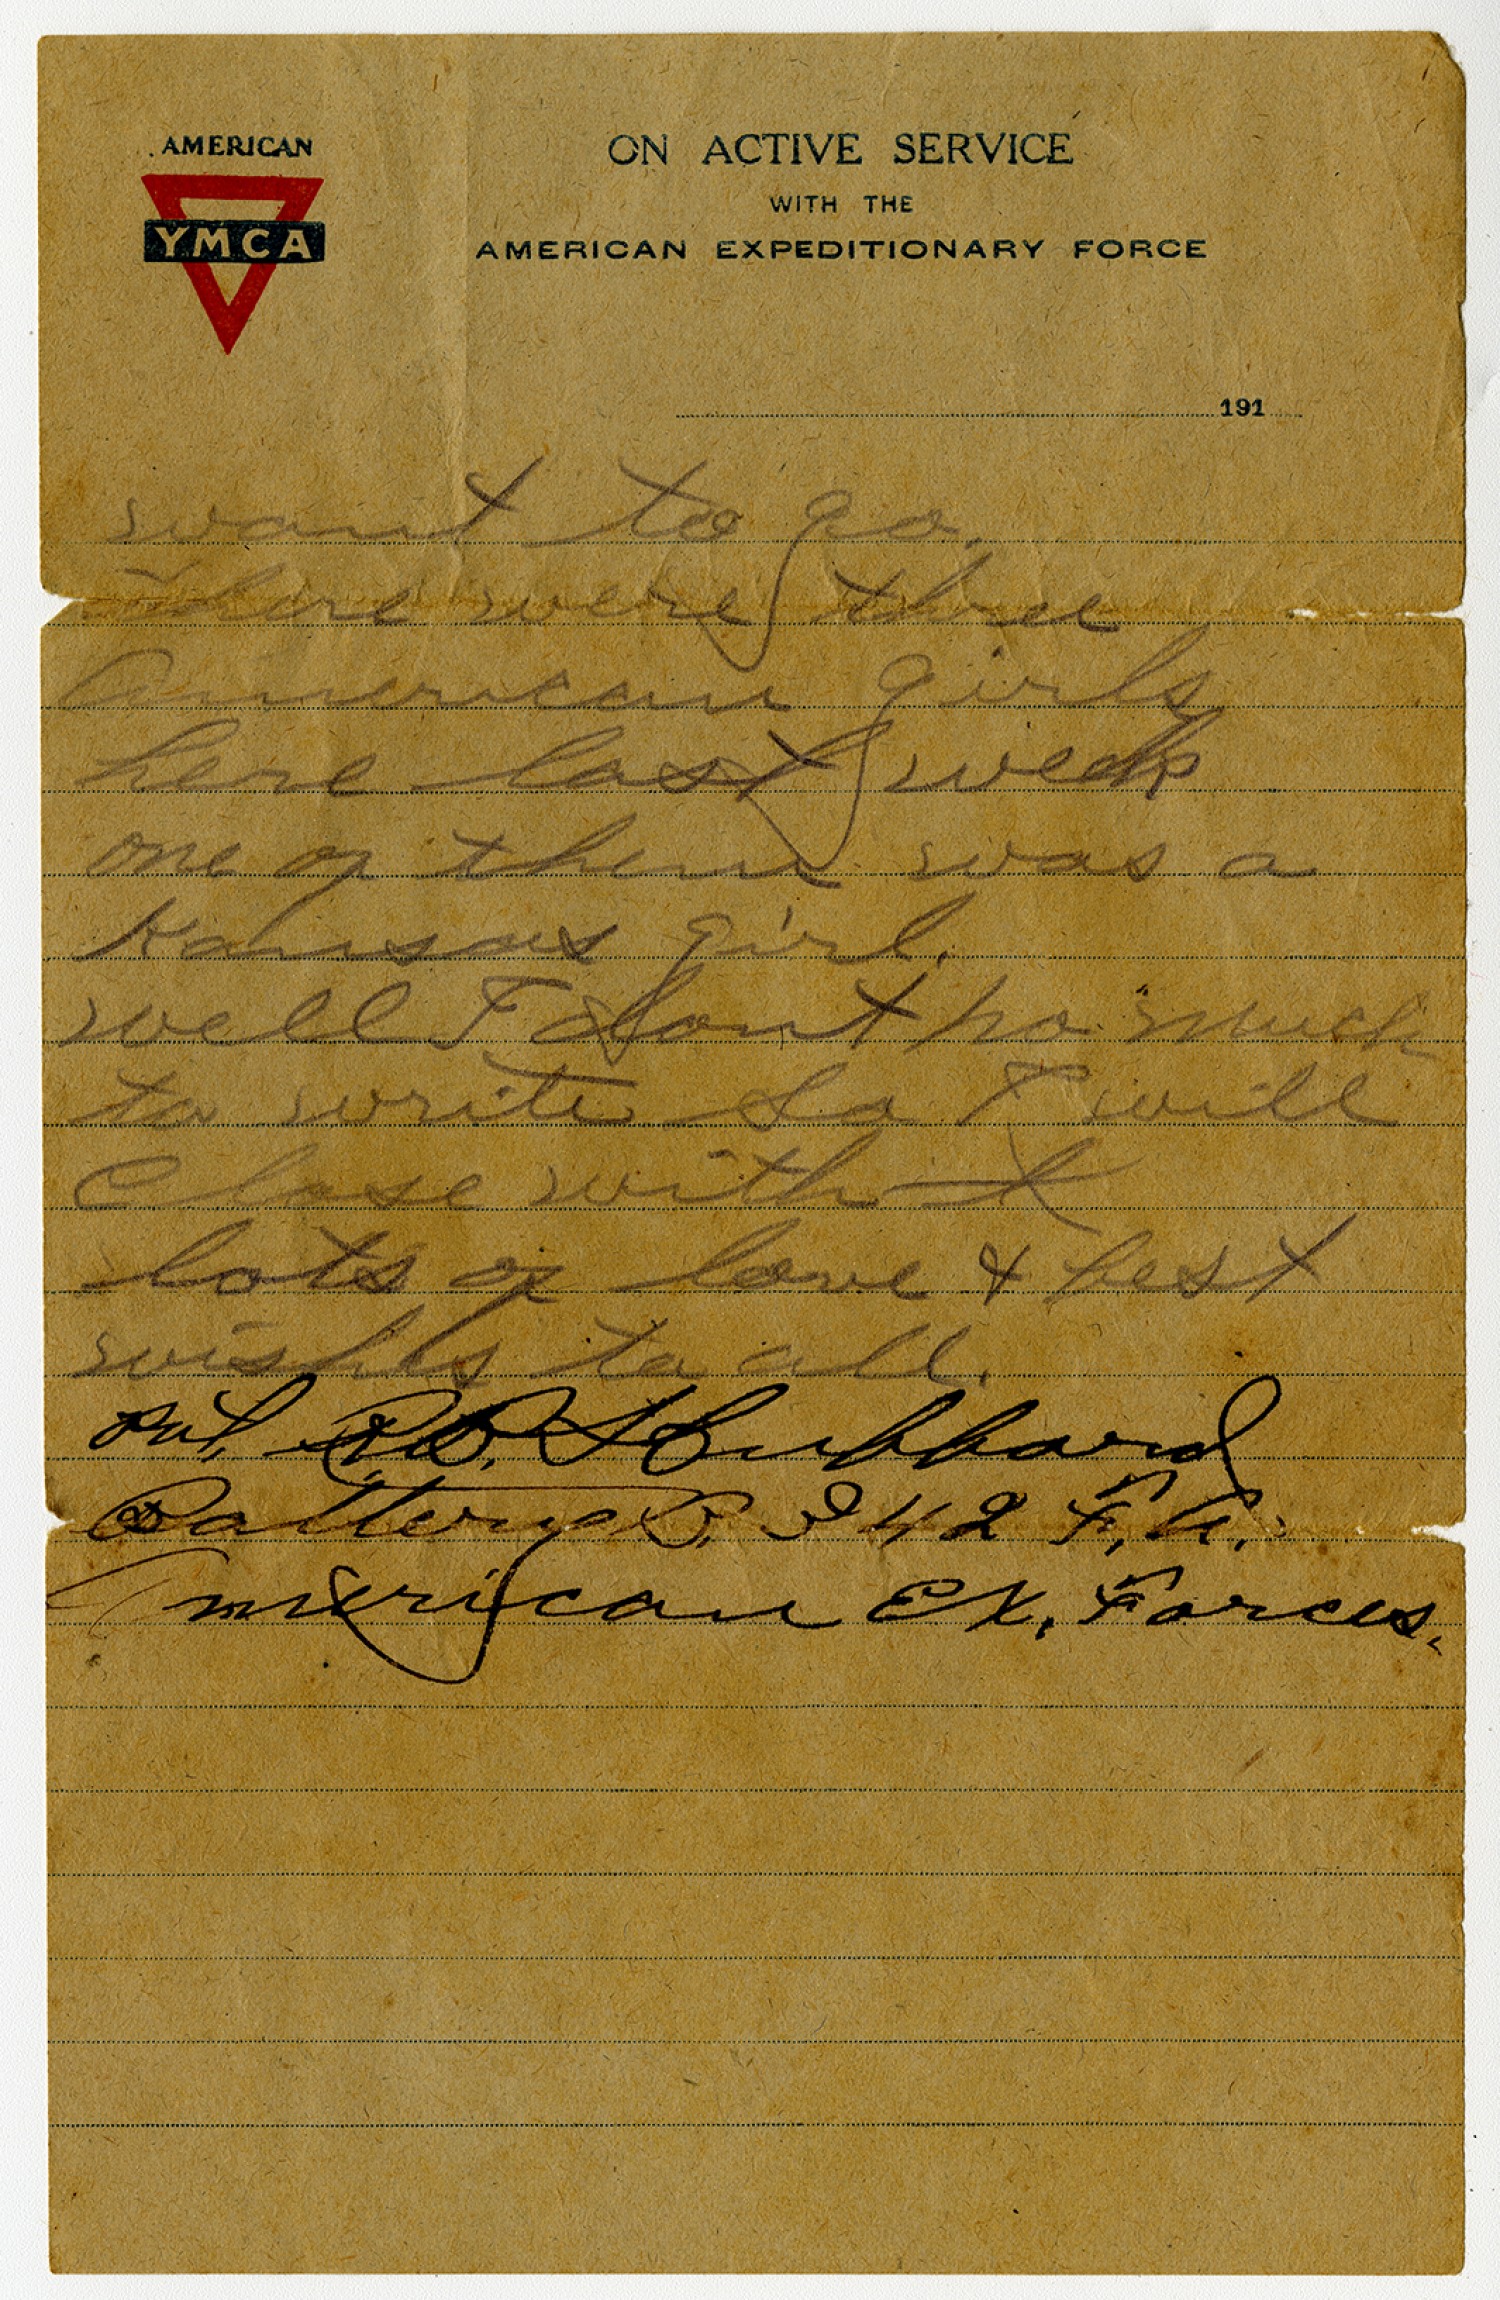 AMERICAN
YMCA
ON ACTIVE SERVICE
WITH THE
AMERICAN EXPEDITIONARY FORCE
191
want to go.
There were three
American girls
here last week
one of them was a
Kansas girl.
well I dont no much
to write so I will
close with
lots of love & best
wishs to all.
Pvt. R.D. Hubbard
Battery B. 342 F.A.
American Ex. Forces.